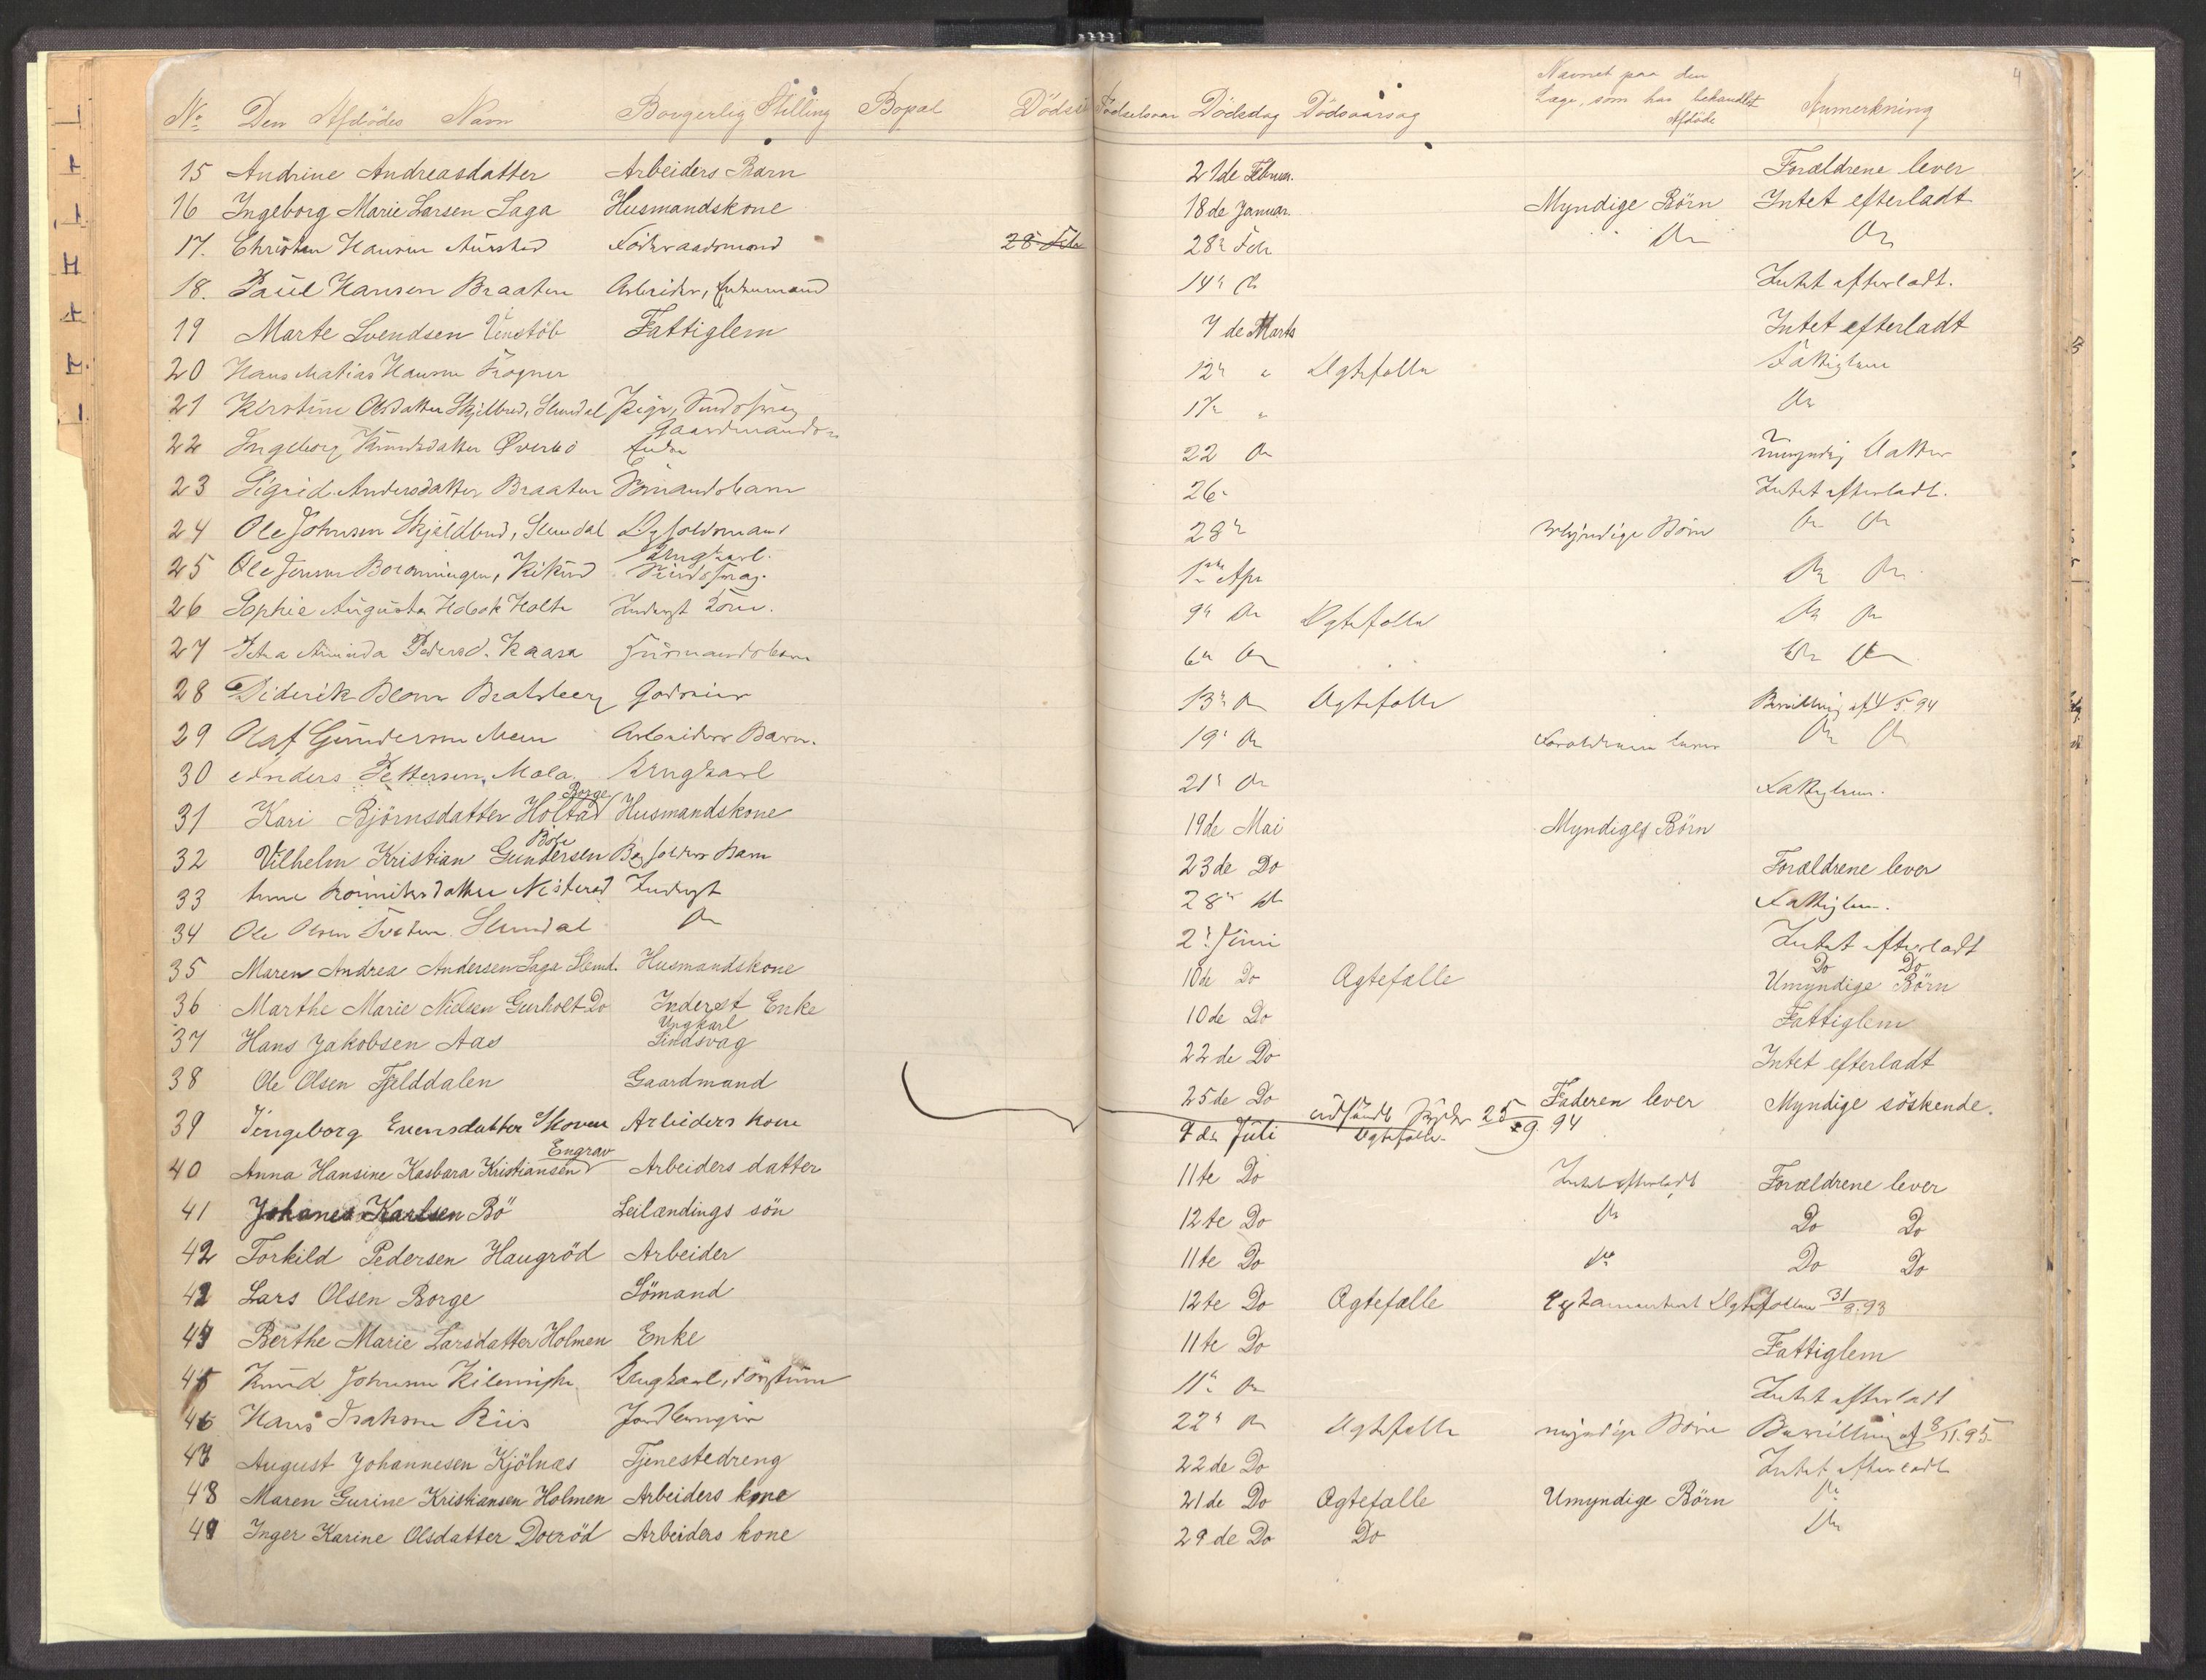 4
No. Den Afdödes Navn Borgerlig Stilling Bopæl Födselsaar Dödsdag Dödsaarsag Navnet paa den
Læge, som har behandlet Anmerkning
Afdöde
15 Andrine Andreasdatter Arbeiders Barn 21de Februar. Forældrene lever
16 Ingeborg Marie Larsen Saga Husmandskone 18de Januar. Myndige Börn Intet efterladt
17. Christen Hansen Föderaadsmand 28 Feb 28de Feb Do Do
18. Paul Hansen Braaten Arbeider, Enkemand 14de Do Intet efterladt.
19 Marte Svendsen Venstöb Fattiglem 7de Marts Intet efterladt
20 Hans Mathias Hansen Fogner 12te " Ægtefælle Fattiglem
21 Kirstine Olsdatter Skjelbred, Slemdal Pige, Sindssvag 17de " Do
Gaardmands
22 Ingeborg Knudsdatter Överbö Enke 22 Do Umyndig Datter
23 Sigrid Andersdatter Braaten Sömandsbarn 26de Intet efterladt.
24 Ole Johnsen Skjeldbred, Slemdal Bygselmand 28de Myndige Börn Do Do
Ungkarl.
25 Ole Jensen Sindssvag. 1ste Apr Do Do
26 Sophie Augusta Holte Inderst Kone. 9de Do Ægtefælle Do Do
27 Petra Aminda Pedersd. Kaasa Husmandsbarn 6te Do Do Do
28 Diderik Blom Bratsberg Godseier 13de Do Ægtefælle Bevilling af 4/5 94
29 Olaf Gundersen Meen Arbeiders Barn. 19de Do Forældrene lever Do Do
30 Anders Pettersen, Mela Ungkarl 21de Do Fattiglem.
Borge
31 Kari Björnsdatter Holtad Husmandskone 19de Mai Myndige Börn
Böle
32 Vilhelm Kristian Gundersen Bygselers Barn 23de Do Forældrene lever
33 Anne Inderst 28de Do Fattiglem.
34 Ole Olsen Tveten Slemdal Do 2den Juni Intet efterladt
35 Maren Andrea Andersen Saga Slemd. Husmandskone 10de Do Ægtefælle Do Do
Umyndige Börn
36 Marthe Marie Nielsen Gurholt Do Inderst Enke 10de Do Fattiglem
Ungkarl
37 Hans Jakobsen Aas Sindsvag 22de Do Intet efterladt
38 Ole Olsen Fjelddalen Gaardmand 25de Do Faderen lever Myndige söskende.
39 Ingeborg Evensdatter Skoven Arbeiders kone 9de Juli udsendt 25/9. 94
Ægtefælle
Engrav
40 Anna Hansine Kasbara Kristiansen Arbeiders datter 11te Do Intet efterladt Forældrene lever
41 Johanes Karlsen Bö Leilændings sön 12te Do Do Do Do
42 Torkild Pedersen Haugröd Arbeider 11te Do Do Do Do
42 Lars Olsen Borge Sömand 12te Do Ægtefælle Ægtefællen 31/8.93
43 Berthe Marie Larsdatter Holmen Enke 11te Do Fattiglem
45 Knud Johnsen Ungkarl, 11te Do Intet efterladt
46 Hans Isaksen Riis Jordbruger 22de Do Ægtefælle myndige Börn Bevilling af 8/11.95
47 August Johannesen Kjölnæs Tjenestedreng 22de Do Intet efterladt
48 Maren Gurine Kristiansen Holmen Arbeiders kone 21de Do Ægtefælle Umyndige Börn Do
49 Inger Karine Olsdatter Doeröd Arbeiders kone 29de Do Do Do